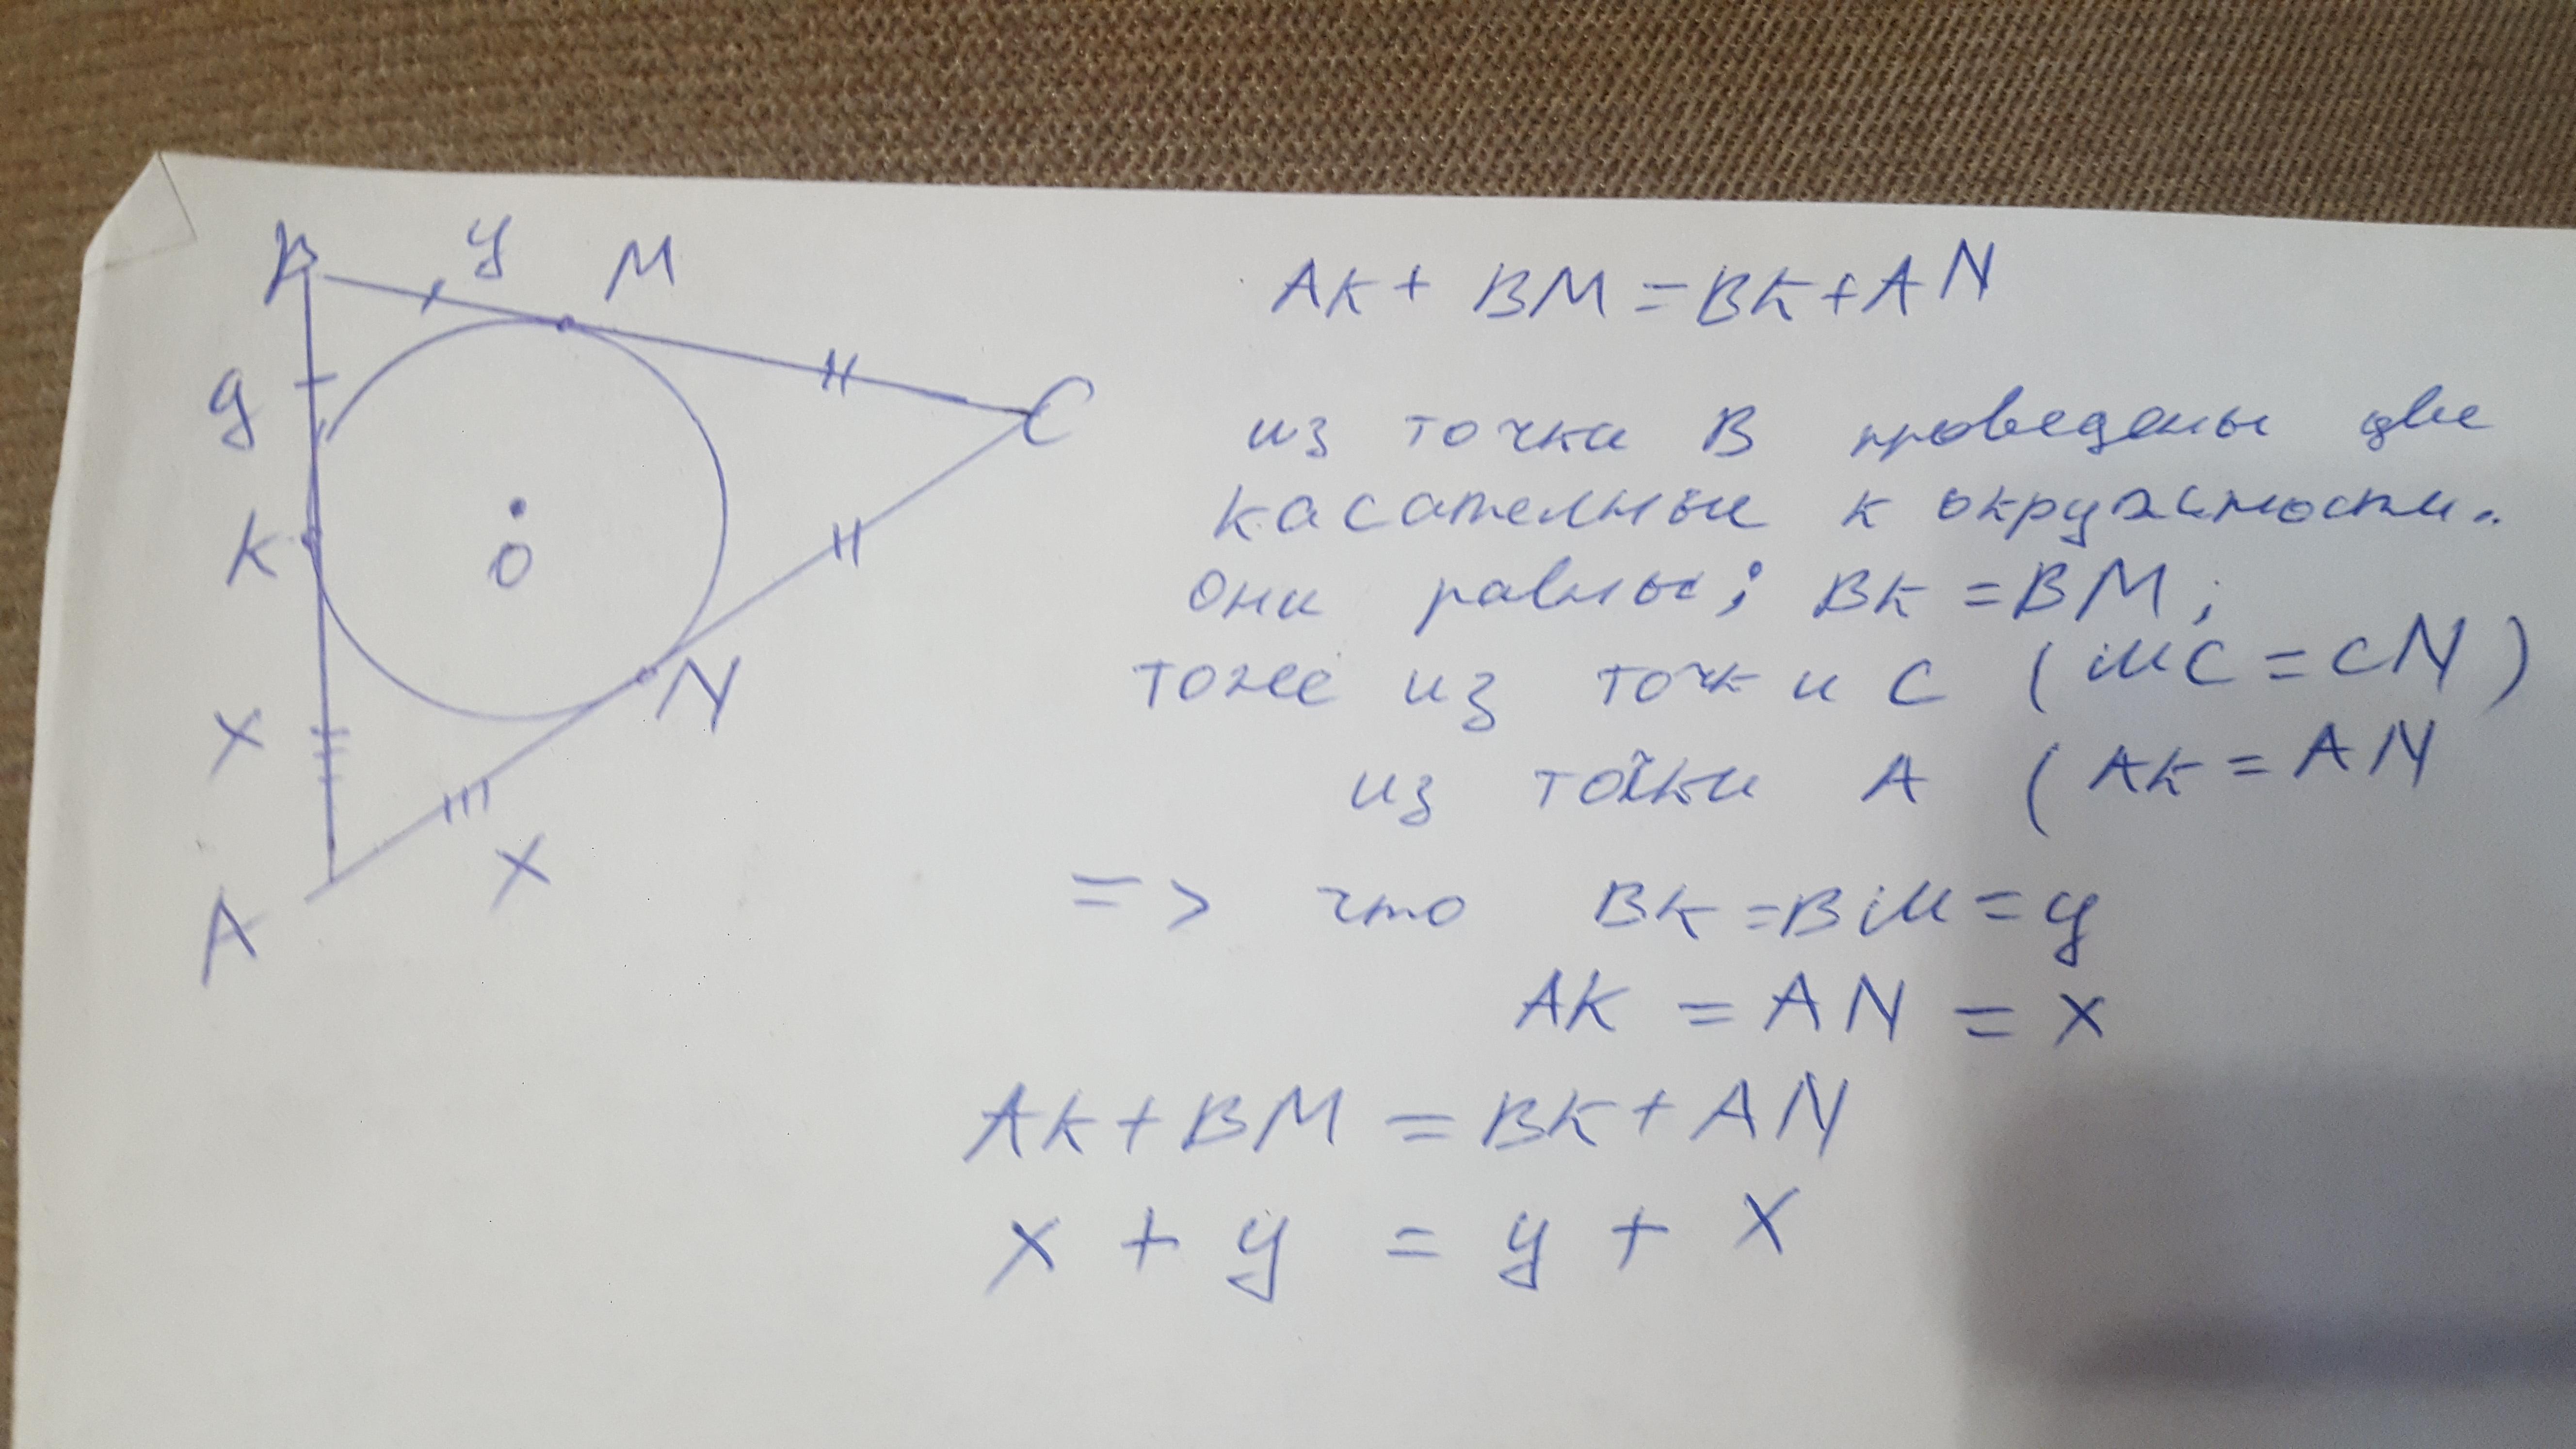 B y M
y
K
O
C
N
x
x
A
AK + BM = BK + AN
из точки B проведены две
касательные к окружности.
они равны; BK = BM;
тоже из точки C (MC = CN)
из точки A (AK = AN
=> что BK = BM = y
AK = AN = x
AK + BM = BK + AN
x + y = y + x